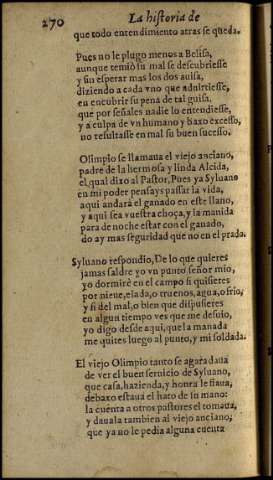 270 La historia de
que todo entendimiento atras se queda.
Pues no le plugo menos a Belisa,
aunque temiò su mal se descubriesse
y sin esperar mas los dos auisa,
diziendo a cada vno que aduirtiesse,
en encubrir su pena de tal guisa,
que por señales nadie lo entendiesse,
y a culpa de vn humano y baxo excesso,
no resultasse en mal su buen sucesso.
Olimpio se llamaua el viejo anciano,
padre de la hermosa y linda Alcida,
el qual dixo al Pastor, Pues ya Syluano
en mi poder pensays passar la vida,
aqui andará el ganado en este llano,
y aqui sea vuestra choça, y la manida
para de noche estar con el ganado,
do ay mas seguridad que no en el prado.
Syluano respondio, De lo que quieres
jamas saldre yo vn punto señor mio,
yo dormirè en el campo si quisieres
por nieue, elada, o truenos, agua, o frio,
y si del mal, o bien que dispusieres
en algun tiempo ves que me desuio,
yo digo desde aqui, que la manada
me quites luego al punto, y mi soldada.
El viejo Olimpio tanto se agradaua
de ver el buen seruicio de Syluano,
que casa, hazienda, y honra le fiaua,
debaxo estaua el hato de su mano:
la cuenta a otros pastores el tomaua,
y dauala tambien al viejo anciano,
que ya no le pedia alguna cuenta